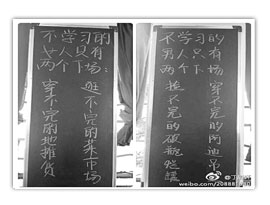 不学习的
女人只有
两个下场:
逛不完的菜市场
穿不完的地摊货
不学习的
男人只有
两个下场
穿不完的
不完的破烂
weibo.com/20888